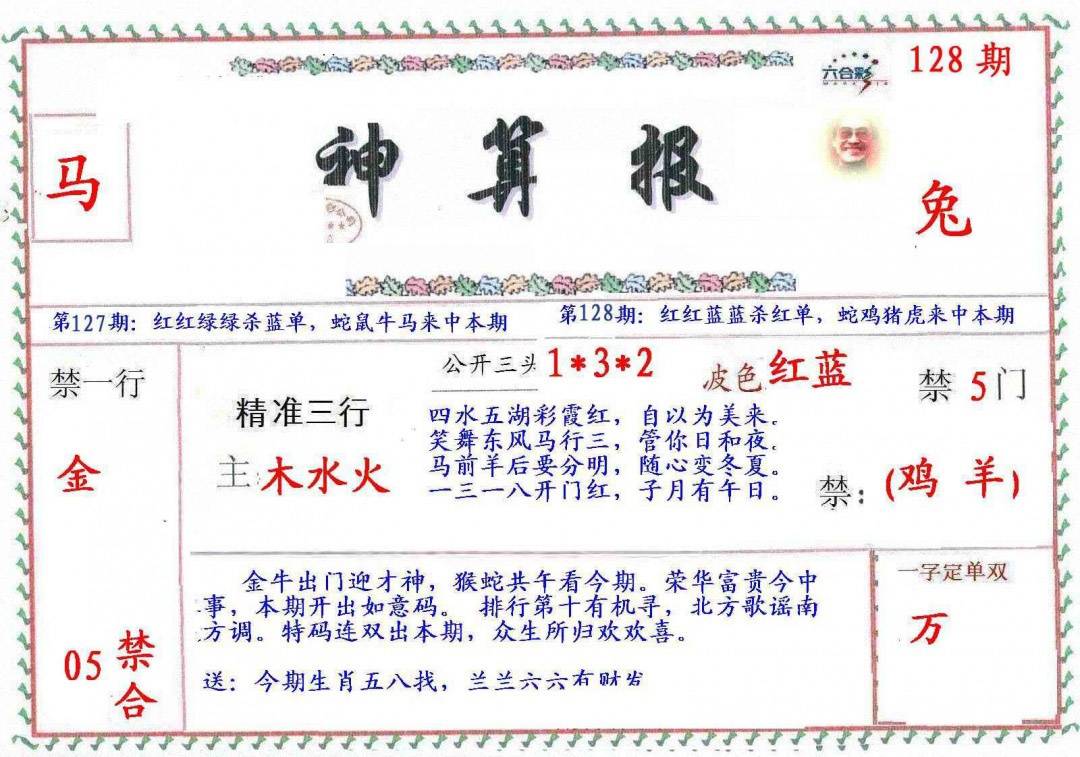 128 期
六合彩
马
神算报
兔
第127期：红红绿绿杀蓝单，蛇鼠牛马来中本期
第128期：红红蓝蓝杀红单，蛇鸡猪虎来中本期
禁一行
金
05 禁合
精准三行
主:木水火
公开三头 1*3*2
波色 红蓝
四水五湖彩霞红，自以为美来。
笑舞东风马行三，管你日和夜。
马前羊后要分明，随心变冬夏。
一三一八开门红，子月有午日。
禁 5 门
禁：(鸡 羊)
金牛出门迎才神，猴蛇共午看今期。荣华富贵今中
事，本期开出如意码。 排行第十有机寻，北方歌谣南
方调。特码连双出本期，众生所归欢欢喜。
送：今期生肖五八找，兰兰六六有财发
一字定单双
万